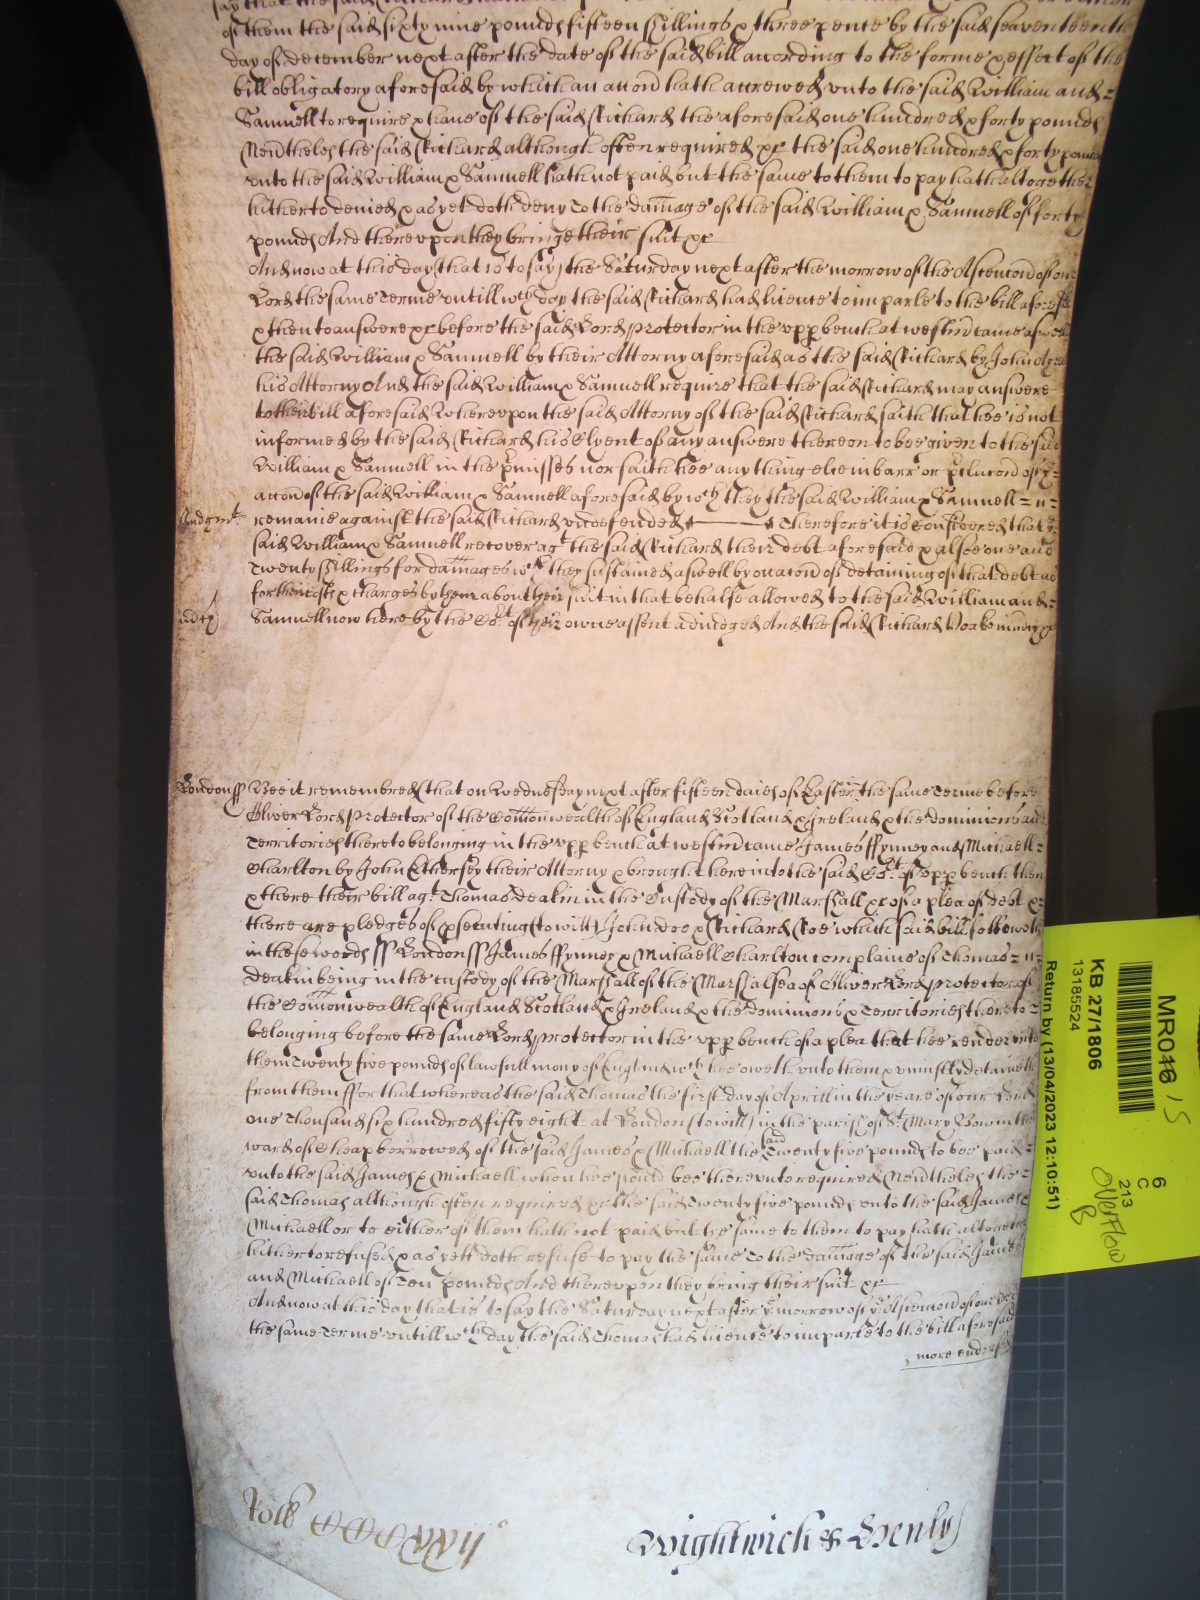 say that the said
of them the said sixty nine pounds fifteen shillings & three pence by the said seaventeenth
day of december next after the date of the said bill according to the forme & effect of the
bill obligatory aforesaid by which an accon hath accrewed unto the said William and =
Samuell to require & have of the said Richard the aforesaid one hundred & forty pounds
Nevertheles the said Richard although often required &c the said one hundred & forty pounds
unto the said William & Samuell hath not paid but the same to them to pay hath altogether
hitherto denied & as yet doth deny To the damage of the said William & Samuell of forty
pounds And thereupon they bringe their suit &c
And now at this day (that is to say) the Saturday next after the morrow of the Ascencon of our
Lord the same Terme untill wch day the said Richard had licence to imparle to the bill aforesd
& then to answere &c before the said Lord Protector in the upp bench at westm came aswell
the said William & Samuell by their Attorny aforesaid as the said Richard by John
his Attorny And the said William & Samuell require that the said Richard may answere
to their bill aforesaid Whereupon the said Attorny of the said Richard saith that hee is not
informed by the said Richard his Clyent of any answere thereon to bee given to the said
William & Samuell in the pmisses nor saith hee any thing else in barr or pclucon of ye
accon of the said William & Samuell aforesaid by wch they the said William & Samuell = n =
Judgmt remaine against the said Richard undefended Therefore it is Considered that ye
said William & Samuell recover agt the said Richard their debt aforesaid & alsoe one and
Twenty shillings for damages wch they sustained aswell by occacon of detaining of that debt as
for their costs & charges by them about their suit in that behalfe allowed to the said William and =
Samuell now here by the Cort of their owne assent adiudged And the said Richard in mcy &c
London ss Bee it remembred that on Wednesday next after fifteen daies of Easter the same Terme before
Oliver Lord Protector of the Comonwealth of England Scotland & Ireland & the dominions and
Territories thereto belonging in the upp bench at westm came James ffynney and Michaell =
Charlton by John Ethersey their Attorny & brought here into the said Cort of upp bench then
& there their bill agt Thomas deakin in the Custody of the Marshall &c of a plea of debt &
there are pledges of psecuting to witt John doo & Richard Roe which said bill followeth
in these words ss London ss James ffynney & Michaell Charlton complaine of Thomas = n =
deakin being in the custody of the Marshall of the Marshalsea of Oliver Lord Protector of
the Comonwealth of England Scotland & Ireland & the dominions & Territories thereto =
belonging before the same Lord Protector in the upp bench of a plea that hee render unto
them Twenty five pounds of lawfull mony of England wch hee oweth unto them & uniustly detaineth
from them ffor that whereas the said Thomas the first day of Aprill in the yeare of our Lord
one Thousand six hundred fifty eight at London (to witt) in the parish of St Mary Bow in the
ward of Cheap borrowed of the said James & Michaell the said Twenty five pounds to bee paid
unto the said James & Michaell when hee should bee thereunto required Nevertheles the =
said Thomas although often required &c the said Twenty five pounds unto the said James &
Michaell or to either of them hath not paid but the same to them to pay hath altogether
hitherto refused & as yett doth refuse to pay the same To the damage of the said James
and Michaell of Ten pounds And thereupon they bring their suit &c
And now at this day that is to say the Saturday next after ye morrow of ye Ascencon of our Lord
the same Terme untill wch day the said Thomas had licence to imparle to the bill aforesaid
more endorsed
Wightwick & Henly
MR046 15
KB 27/1806
13185524
Return by (13/04/2023 12:10:51)
6
C
213
OVERFLOW
B